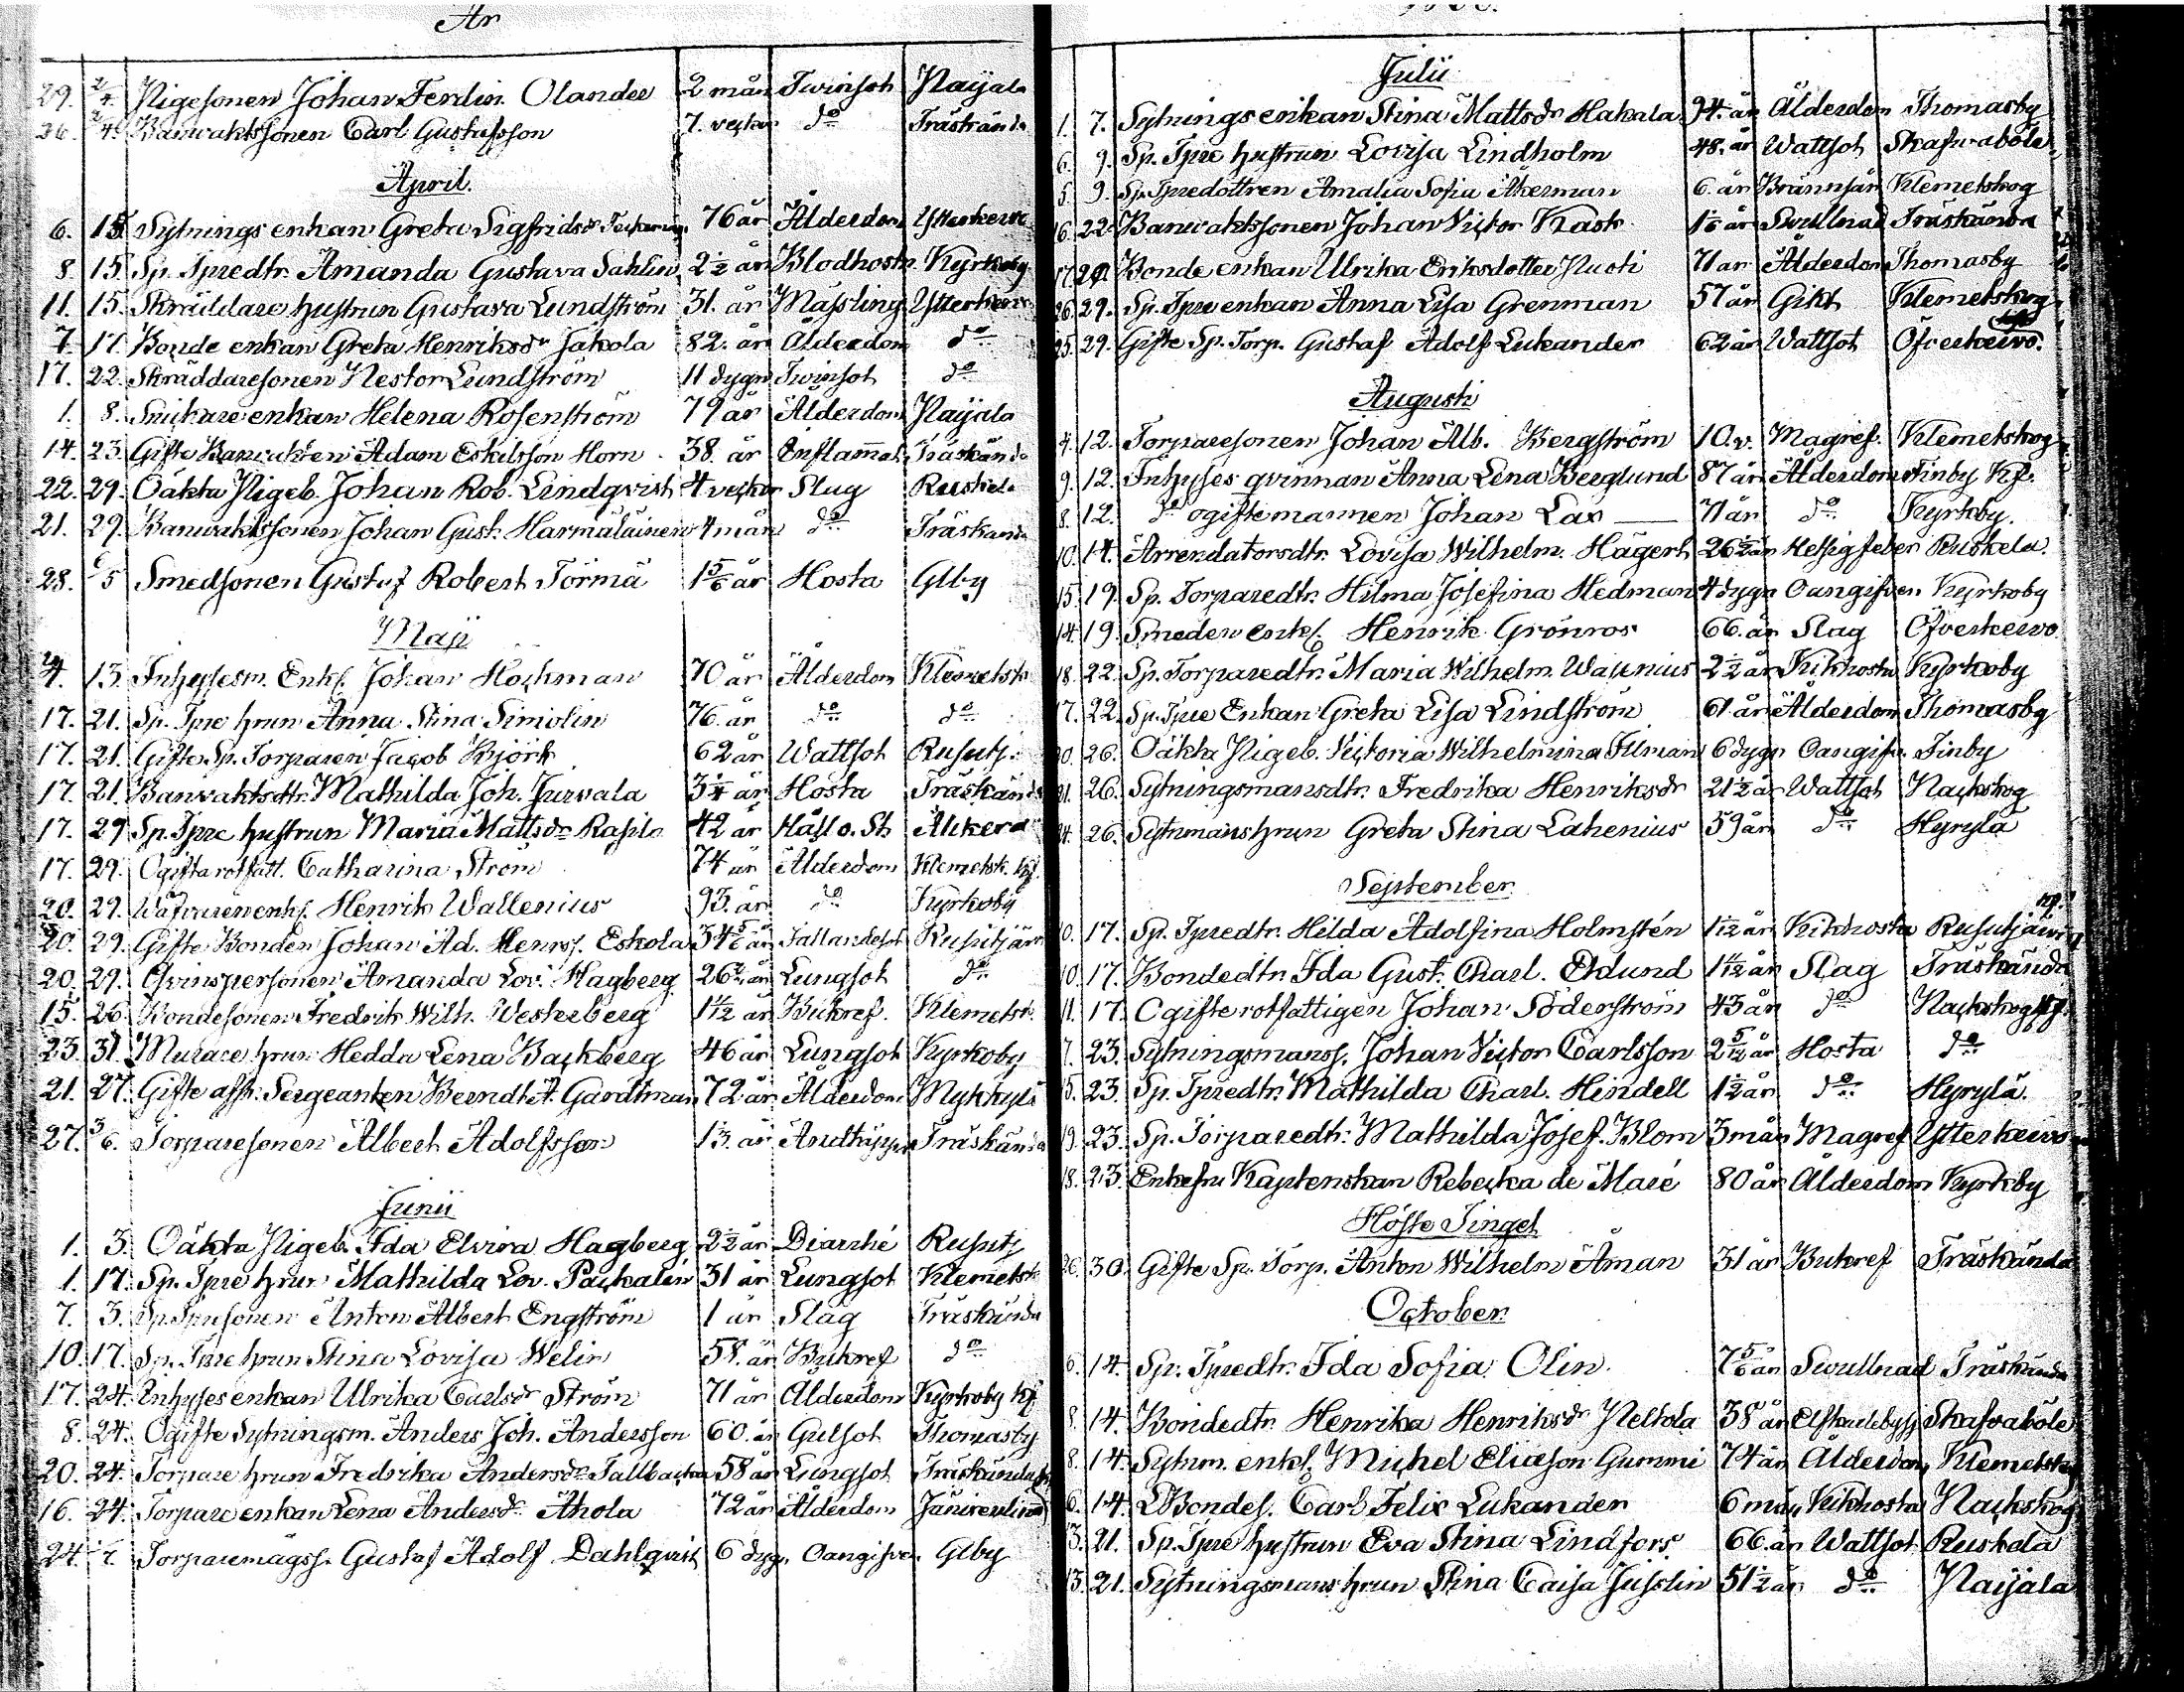 År
29. 2/4. Pigesonen Johan Ferdin. Olander 2 mån Twinsot Paijala
26. 2/4. Banvaktssonen Carl Gustafsson 7. veckor do Träskända
April.
6. 15. Sytnings enkan Greta Sigfridsdr 76 år Ålderdom Ytterkervo
8. 15. Sp. Tpredtr. Amanda Gustava Sahlin 2 1/2 år Blodhosta Kyrkoby
11. 15. Skräddare hustrun Gustava Lundström 31. år Mässling Ytterkervo
7. 17. Bonde enkan Greta Henriksdr Jakola 82. år Ålderdom do
17. 22. Skräddaresonen Nestor Lundström 11 dygn Twinsot do
1. 8. Snickare enkan Helena Rosenström 79 år Ålderdom Paijala
14. 23. Gifte Banvakten Adam Eskilsson Horn 38. år Inflammat. Träskända
22. 29. Oäkta Pigeb. Johan Rob. Lindqvist 4 veckor Slag Ruskela
21. 29. Banvaktssonen Johan Gust. Harmäläinen 4 mån do Träskända
28. 6/5 Smedsonen Gustaf Robert Törmä 1 5/6 år Hosta Glby
Maji
4. 13. Inhysesm. Enkl. Johan Hockman 70 år Ålderdom Klemetsk.
17. 21. Sp. Tpre hrun Anna Stina Simolin 76. år do do
17. 21. Gifte Sp. Torparen Jacob Björk 62 år Wattsot Rusutj.
17. 21. Banvaktsdtr. Mathilda Joh. Jurvala 3 1/4 år Hosta Träskända
17. 29 Sp. Tpre hustrun Maria Mattsdr Rasilo 42 år Håll o. St. Åkerd
17. 29. Ogifta rotfatt. Catharina Ström 74 år Ålderdom Klemetsk. Kf.
20. 29. Wäfvaren enkl. Henrik Wallenius 93. år do Kyrkoby
20. 29. Gifte Bonden Johan Ad. Henrss. Eskola 34 5/6 år Fallandesot Rusutjärvi
20. 29. Qvinspersonen Amanda Lov. Hagberg 26 år Lungsot do
15. 26. Bondesonen Fredrik Wilh. Westerberg 1 1/12 år Bukref. Klemetsk.
23. 31. Murare hrun Hedda Lena Backberg 46 år Lungsot Kyrkoby
21. 27. Gifte afsk. Sergeanten Berndt A. Gardtman 72 år Ålderdom Nykkylä
27. 3/6. Torparesonen Albert Adolfsson 1 1/3. år Andtäppa Träskända
Junii
1. 3. Oäkta Pigeb. Ida Elvira Hagberg 2 1/2 år Diarrhé Rusutj
1. 17. Sp. Tpre hrun Mathilda Lov. Packalén 31 år Lungsot Klemetsk
7. 3. Sp. Tpresonen Anton Albert Engström 1 år Slag Träskända
10. 17. Sp. Tpre hrun Stina Lovisa Welin 58. år Bukref do
17. 24. Inhyses enkan Ulrika Carlsdr Ström 71 år Ålderdom Kyrkoby Kf.
8. 24. Ogifte Sytningsm. Anders Joh. Andersson 60. år Gulsot Thomasby
20. 24. Torpare hrun Fredrika Andersdr Tallbacka 58 år Lungsot Träskända
16. 24. Torpare enkan Lena Andersdr Ahola 72 år Ålderdom Jänicenlinna
24. 1/7. Torparemågss. Gustaf Adolf Dahlqvist 6 dyg. Oangifven Glby
Julii
1. 7. Sytnings enkan Stina Mattsdr Hakala 94. år Ålderdom Thomasby
6. 9. Sp. Tpre hustrun Lovisa Lindholm 48. år Wattsot Skafvaböle
5. 9. Sp. Tpredottren Amalia Sofia Åkerman 6. år Brännsår Klemetskog
16. 22. Banvaktssonen Johan Victor Rask 1 1/6 år Swullnad Träskända
17. 29. Bonde enkan Ulrika Eriksdotter Nuoti 71 år Ålderdom Thomasby
26. 29. Sp. Tpre enkan Anna Lisa Grenman 57 år Gikt Klemetskog
25. 29. Gifte Sp. Torp. Gustaf Adolf Lukander 62 år Wattsot Öfverkervo.
Augusti
4. 12. Torparesonen Johan Alb. Bergström 10. v. Magref. Klemetskog
9. 12. Inhyses qvinnan Anna Lena Berglund 87 år Ålderdom Finby Kf.
8. 12. do ogifte mannen Johan Lax 71 år do Kyrkby.
10. 14. Arrendatorsdtr. Lovisa Wilhelm. Hagert 26 1/2 år Hetsig feber Ruskela.
15. 19. Sp. Torparedtr. Hilma Josefina Hedman 4 dygn Oangifven Kyrkoby
14. 19. Smeden enkl. Henrik Grönroos 66. år Slag Öfverkervo.
18. 22. Sp. Torparedtr. Maria Wilhelm. Wallenius 2 1/2 år Kikhosta Kyrkoby
17. 22. Sp. Tpre Enkan Greta Lisa Lindström 61 år Ålderdom Thomasby
20. 26. Oäkta Pigeb. Victoria Wilhelmina Filman 6 dygn Oangifv. Finby
21. 26. Sytningsmansdtr. Fredrika Henriksdr 21 1/2 år Wattsot Nackskog
24. 26. Sytnmans hrun Greta Stina Lahenius 59 år do Hyrylä
September
10. 17. Sp. Tpredtr. Hilda Adolfina Holmstén 1 1/12 år Kikhosta Rusutjärvi
10. 17. Bondedtr. Ida Gust. Charl. Eklund 1 4/12 år Slag Träskända
11. 17. Ogifte rotfattigen Johan Söderström 43 år do Nackskog Kf.
7. 23. Sytningsmanss. Johan Victor Carlsson 2 5/12 år Hosta do
15. 23. Sp. Tpredtr. Mathilda Charl. Hindell 1 1/2 år do Hyrylä.
19. 23. Sp. Torparedtr. Mathilda Josef. Blom 3 mån Magref Ytterkervo
18. 23. Enkefru Kaptenskan Rebecka de Maré 80 år Ålderdom Kyrkby
Höste Tinget
26. 30. Gifte Sp. Torp. Anton Wilhelm Åman 31 år Bukref Träskända
October.
6. 14. Sp. Tpredtr. Ida Sofia Olin 7 5/6 år Swullnad Träskända
8. 14. Bondedtr. Henrika Henriksdr Peltola 38 år Skafvaböle
8. 14. Sytnm. enkl. Michel Eliason Gummi 74 år Ålderdom Klemetskog
6. 14. Bondes. Carl Felix Lukander 6 mån Kikhosta Nackskog
13. 21. Sp. Tpre hustrun Eva Stina Lindfors 66. år Wattsot Ruskela
13. 21. Sytningsmans hrun Stina Caisa Jusslin 51 1/2 år do Paijala